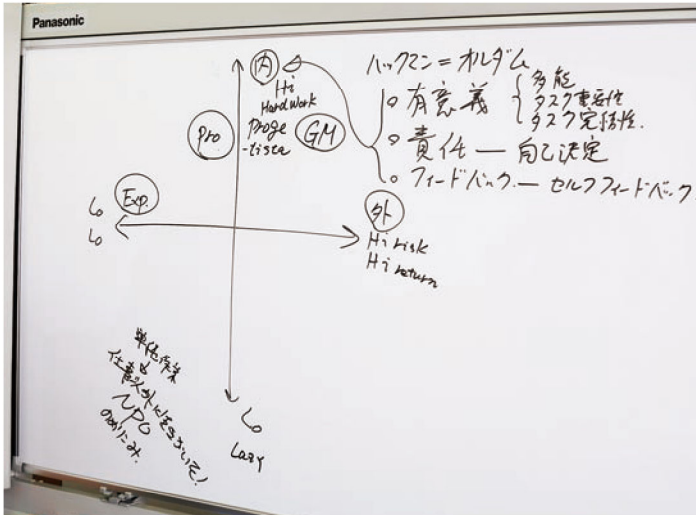 Panasonic
内
Hi
Hardwork
Proge
-tista
Pro
GM
ハックマン=オルダム
有意義
多能
タスク重要性
タスク完結性
責任 — 自己決定
フィードバック — セルフフィードバック
Exp.
Lo
Lo
外
Hi risk
Hi return
単純作業
仕事以外に
NPO
のめりこみ
Lo
Lazy